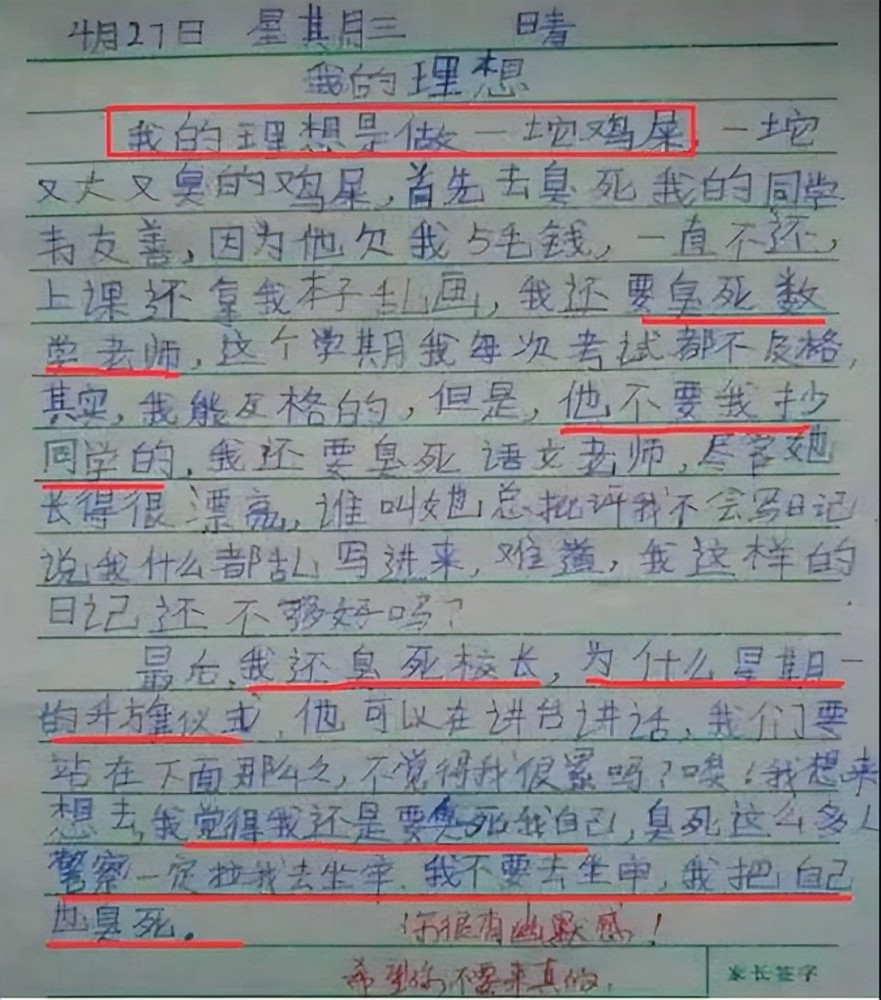 4月27日 星其月三 晴
我的理想
我的理想是做一坨鸡屎,一坨
又大又臭的鸡屎,首先去臭死我的同学
韦友善,因为他欠我5毛钱,一直不还,
上课还拿我本子乱画,我还要臭死数
学老师,这个学期我每次考试都不及格,
其实,我能及格的,但是,他不要我抄
同学的,我还要臭死语文老师,尽管她
长得很漂亮,谁叫她总批评我不会写日记
说我什么都乱写进来,难道,我这样的
日记还不够好吗?
最后,我还臭死校长,为什么星期一
的升旗仪式,他可以在讲台讲话,我们要
站在下面那么久,不觉得我很累吗?唉!我想来
想去,我觉得我还是要臭死我自己,臭死这么多人
警察一定拉我去坐牢.我不要去坐牢,我把自己
也臭死。
你很有幽默感!
希望你不要来真的.
家长签字